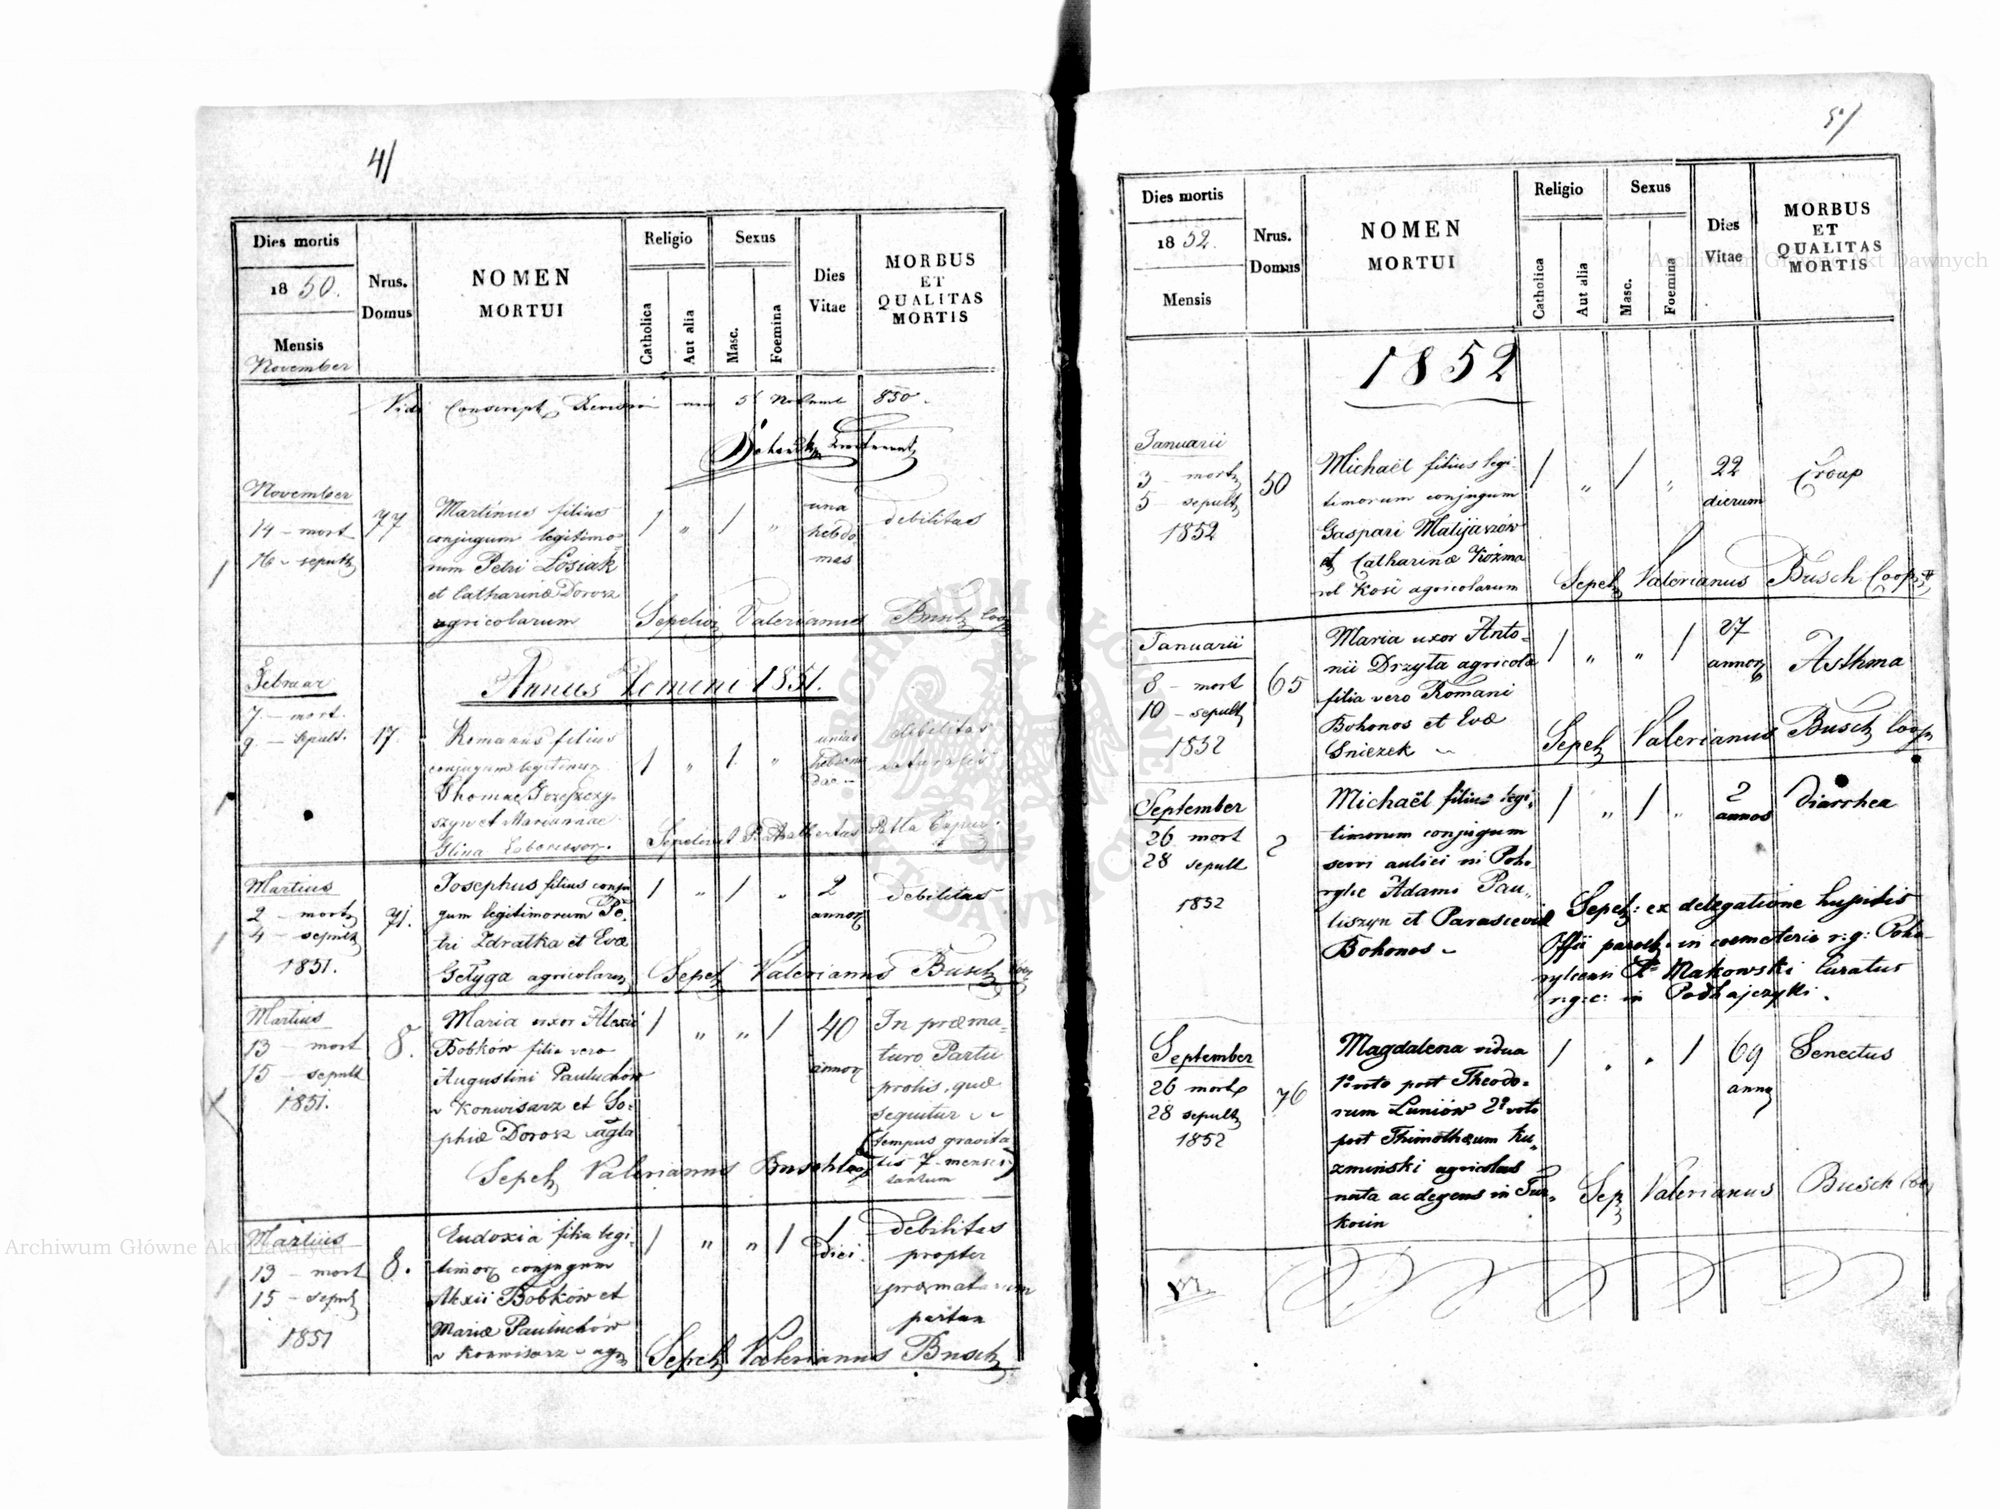 4/
Dies mortis
1850.
Mensis
November
Nrus.
Domus
NOMEN
MORTUI
Religio
Catholica
Aut alia
Sexus
Masc.
Foemina
Dies
Vitae
MORBUS
ET
QUALITAS
MORTIS
850.
November
14 – mort
16 – sepult
77
Martinus filius
conjugum legitimo-
rum Petri Łosiak
et Catharinæ Dorosz
agricolarum
1 " 1 "
una
hebdo
mas
debilitas
Valerianus
Annus Domini 1851.
Februar
7 – mort.
9 – sepult.
17.
Romanus filius
conjugum
Thomae
szyn et Mariannae
Glina
1 " 1 "
unius
debilitas
Martius
2 – mort
4 – sepult
1851.
71.
Josephus filius conju
gum legitimorum Pe-
tri Zdratka et Evæ
Gełyga agricolarum
1 " 1 "
2
annor
debilitas
Sepel Valerianus Busch
Martius
13 – mort
15 – sepult
1851.
8.
Maria uxor Alexii
Bobków filia vero
Augustini Pauluchów
v Konwisarz et So-
phiæ Dorosz agla
1 " " 1
40
annor
In præma-
turo Partu
prolis, quæ
sequitur
(tempus gravita
tis 7 menses)
tantum
Sepel Valerianus Busch
Martius
13 – mort
15 – sepult
1851
8.
Eudoxia filia legi-
timor conjugum
Alexii Bobków et
Mariæ Pauluchów
v Konwisarz – agr
1 " " 1
1
diei
debilitas
propter
præmaturum
partum
Sepel Valerianus Busch
5/
Dies mortis
1852.
Mensis
Nrus.
Domus
NOMEN
MORTUI
Religio
Catholica
Aut alia
Sexus
Masc.
Foemina
Dies
Vitae
MORBUS
ET
QUALITAS
MORTIS
1852
Januarii
3 – mort
5 – sepult
1852
50
Michaël filius legi-
timorum conjugum
Gaspari Matijaszów
et Catharinæ Kozma
agricolarum
1 " 1 "
22
dierum
Croup
Sepel Valerianus Busch Coop
Januarii
8 – mort
10 – sepult
1852
65
Maria uxor Anto-
nii Drzyta agricolæ
filia vero Romani
Bohonos et Evæ
Sniezek
1 " " 1
27
annor
Asthma
Sepel Valerianus Busch Coop
September
26 mort
28 sepult
1852
2
Michaël filius legi-
timorum conjugum
servi aulici in Poho
rylce Adami Pau-
liszyn et Parasceviæ
Bohonos
1 " 1 "
2
annos
Diarrhea
Sepel: ex delegatione hujatis
Offii paroch. in coemeterio r: g: Poho-
rylcensi Makowski Curatus
r: g: c: in Podhajczyki.
September
26 mort
28 sepult
1852
76
Magdalena vidua
1º voto post Theodo-
rum Luniów 2º voto
post Thimotheum Ku-
zminski agricolas
nata ac degens in Tur-
kocin
1 " " 1
69
anno
Senectus
Sep Valerianus Busch
Archiwum Główne Akt Dawnych
Archiwum Główne Akt Dawnych
ARCHIWUM GŁÓWNE AKT DAWNYCH